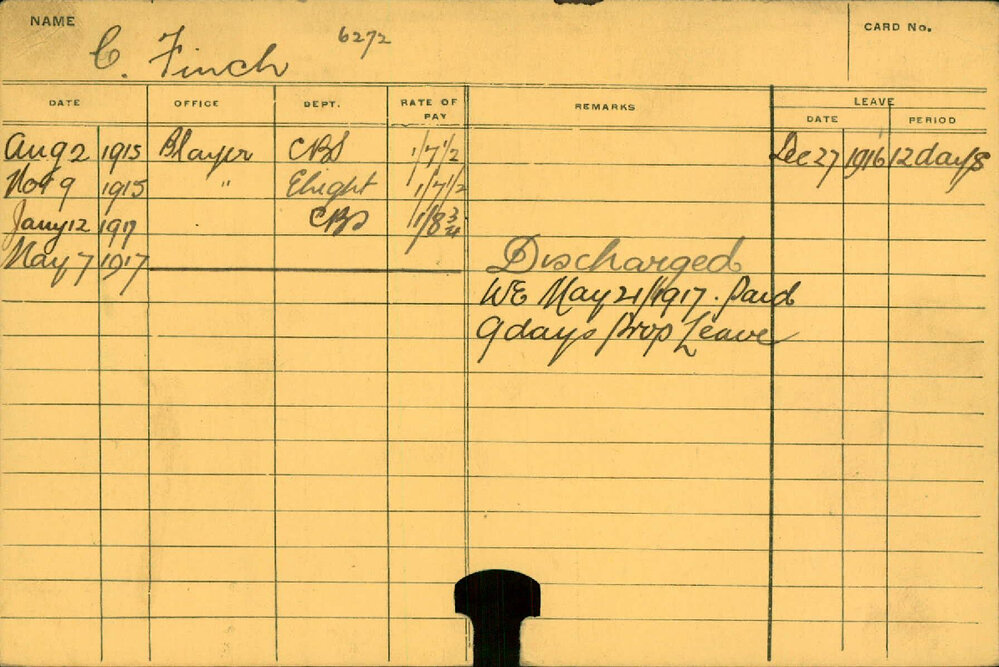 NAME C. Finch 6272 CARD No.
DATE OFFICE DEPT. RATE OF PAY REMARKS LEAVE DATE PERIOD
Aug 2 1915 Blayer CBS 1/7 1/2 Dec 27 1916 12 days
Nov 9 1915 " 1/7 1/2
Jany 12 1917 CBS 1/8 3/4
May 7 1917 Discharged
WE May 21/1917. Paid
9 days Prop Leave